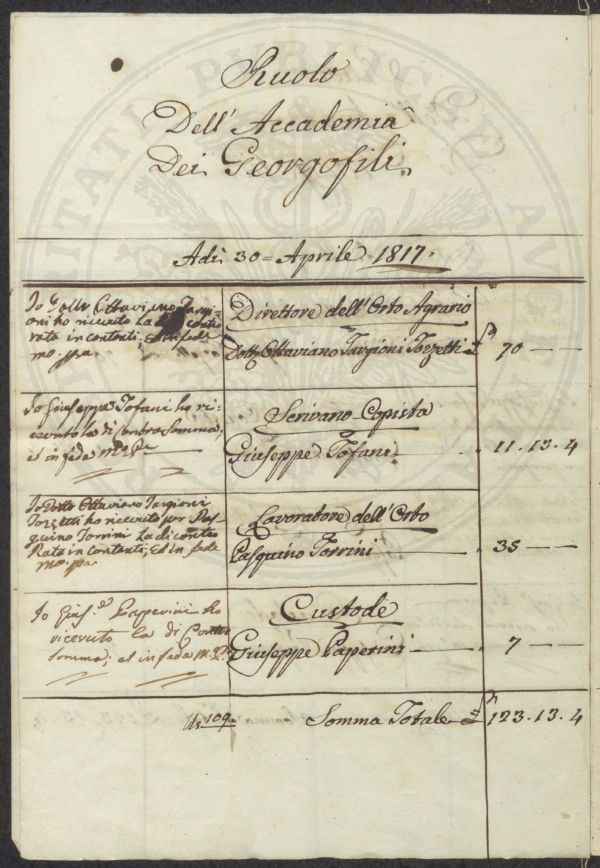 Ruolo
Dell' Accademia
Dei Georgofili
Adi 30 = Aprile 1817.
Io Dottr Ottaviano Targi-
oni ho ricevuto La di contro
rata in contenti, ed in fede
mo. ppa.
Direttore dell'Orto Agrario
Dottr Ottaviano Targioni Tozzetti £ 70 — —
Io Giuseppe Tofani ho ri=
cevuto la di contro Somma,
et in fede
Scrivano Copista
Giuseppe Tofani 11.13.4
Io Dottr Ottaviano Targioni
Tozzetti ho ricevuto per Pas-
quino Torrini La di contro
Rata in contenti, ed in fede
mo. ppa.
Lavoratore dell'Orto
Pasquino Torrini 35 — —
Io Gius.e Paperini ho
ricevuto la di Contro
Somma; et in fede
Custode
Giuseppe Paperini 7 —
Us. 109. Somma Totale £ 123.13.4